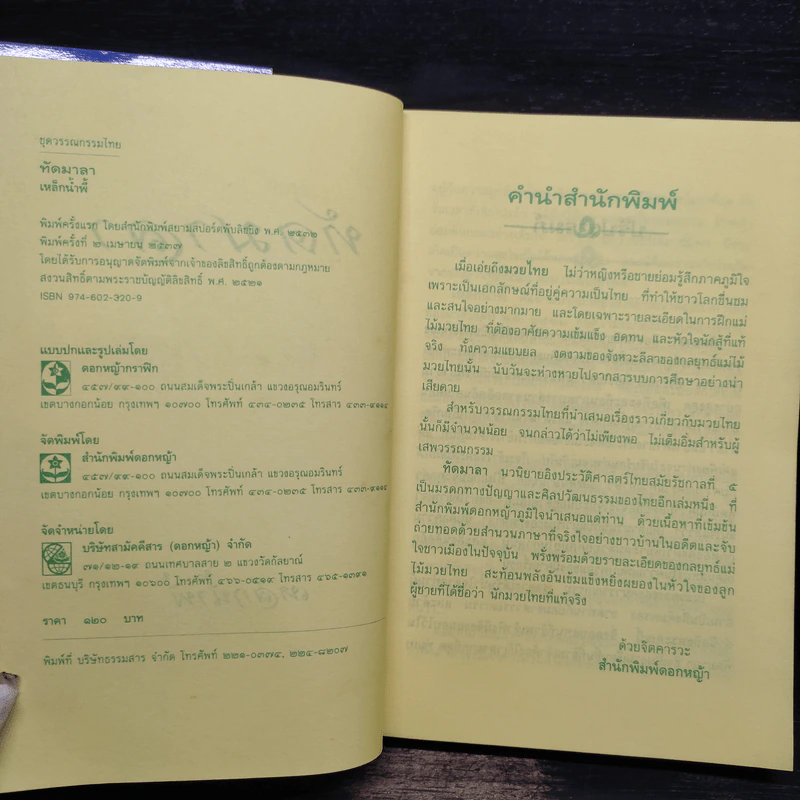 ชุดวรรณกรรมไทย
ทัดมาลา
เหล็กน้ำพี้
พิมพ์ครั้งแรก โดยสำนักพิมพ์สยามสปอร์ตพับลิชชิ่ง พ.ศ. ๒๕๓๒
พิมพ์ครั้งที่ ๒ เมษายน ๒๕๓๗
โดยได้รับการอนุญาตจัดพิมพ์จากเจ้าของลิขสิทธิ์ถูกต้องตามกฎหมาย
สงวนสิทธิ์ตามพระราชบัญญัติลิขสิทธิ์ พ.ศ. ๒๕๒๑
ISBN 974-602-320-9
แบบปกและรูปเล่มโดย
ดอกหญ้ากราฟิก
๔๕๗/๙๙-๑๐๐ ถนนสมเด็จพระปิ่นเกล้า แขวงอรุณอมรินทร์
เขตบางกอกน้อย กรุงเทพฯ ๑๐๗๐๐ โทรศัพท์ ๔๓๔-๐๒๓๕ โทรสาร ๔๓๓-๙๑๑๔
จัดพิมพ์โดย
สำนักพิมพ์ดอกหญ้า
๔๕๗/๙๙-๑๐๐ ถนนสมเด็จพระปิ่นเกล้า แขวงอรุณอมรินทร์
เขตบางกอกน้อย กรุงเทพฯ ๑๐๗๐๐ โทรศัพท์ ๔๓๔-๐๒๓๕ โทรสาร ๔๓๓-๙๑๑๔
จัดจำหน่ายโดย
บริษัทสามัคคีสาร (ดอกหญ้า) จำกัด
๗๑/๑๒-๑๙ ถนนเทศบาลสาย ๒ แขวงวัดกัลยาณ์
เขตธนบุรี กรุงเทพฯ ๑๐๖๐๐ โทรศัพท์ ๔๖๖-๐๕๑๙ โทรสาร ๔๖๕-๑๓๙๑
ราคา ๑๒๐ บาท
พิมพ์ที่ บริษัทธรรมสาร จำกัด โทรศัพท์ ๒๒๑-๐๓๗๔, ๒๒๔-๘๒๐๗
คำนำสำนักพิมพ์
เมื่อเอ่ยถึงมวยไทย ไม่ว่าหญิงหรือชายย่อมรู้สึกภาคภูมิใจ
เพราะเป็นเอกลักษณ์ที่อยู่คู่ความเป็นไทย ที่ทำให้ชาวโลกชื่นชม
และสนใจอย่างมากมาย และโดยเฉพาะรายละเอียดในการฝึกแม่
ไม้มวยไทย ที่ต้องอาศัยความเข้มแข็ง อดทน และหัวใจนักสู้ที่แท้
จริง ทั้งความแยบยล งดงามของจังหวะลีลาของกลยุทธ์แม่ไม้
มวยไทยนั้น นับวันจะห่างหายไปจากสารบบการศึกษาอย่างน่า
เสียดาย
สำหรับวรรณกรรมไทยที่นำเสนอเรื่องราวเกี่ยวกับมวยไทย
นั้นก็มีจำนวนน้อย จนกล่าวได้ว่าไม่เพียงพอ ไม่เต็มอิ่มสำหรับผู้
เสพวรรณกรรม
ทัดมาลา นวนิยายอิงประวัติศาสตร์ไทยสมัยรัชกาลที่ ๕
เป็นมรดกทางปัญญาและศิลปวัฒนธรรมของไทยอีกเล่มหนึ่ง ที่
สำนักพิมพ์ดอกหญ้าภูมิใจนำเสนอแด่ท่าน ด้วยเนื้อหาที่เข้มข้น
ถ่ายทอดด้วยสำนวนภาษาที่จริงใจอย่างชาวบ้านในอดีตและจับ
ใจชาวเมืองในปัจจุบัน พรั่งพร้อมด้วยรายละเอียดของกลยุทธ์แม่
ไม้มวยไทย สะท้อนพลังอันเข้มแข็งหยิ่งผยองในหัวใจของลูก
ผู้ชายที่ได้ชื่อว่า นักมวยไทยที่แท้จริง
ด้วยจิตคารวะ
สำนักพิมพ์ดอกหญ้า